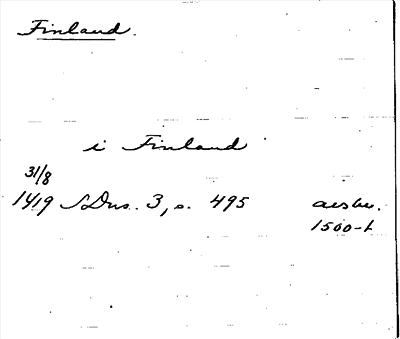 Finland.
i Finland
31/8
1419 SDns. 3, s. 495 avskr.
1500-t